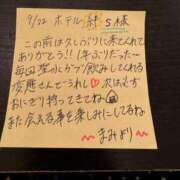 9/22 ホテル S様
この前は久しぶりに来てくれて
ありがとう!! 1年ぶりだったー
毎回 がっつり飲みしてくれる
変態さんでうれしい♡ 次はまた
おにぎり持ってきてね
また会える事を楽しみにしてるね
〜まみより〜